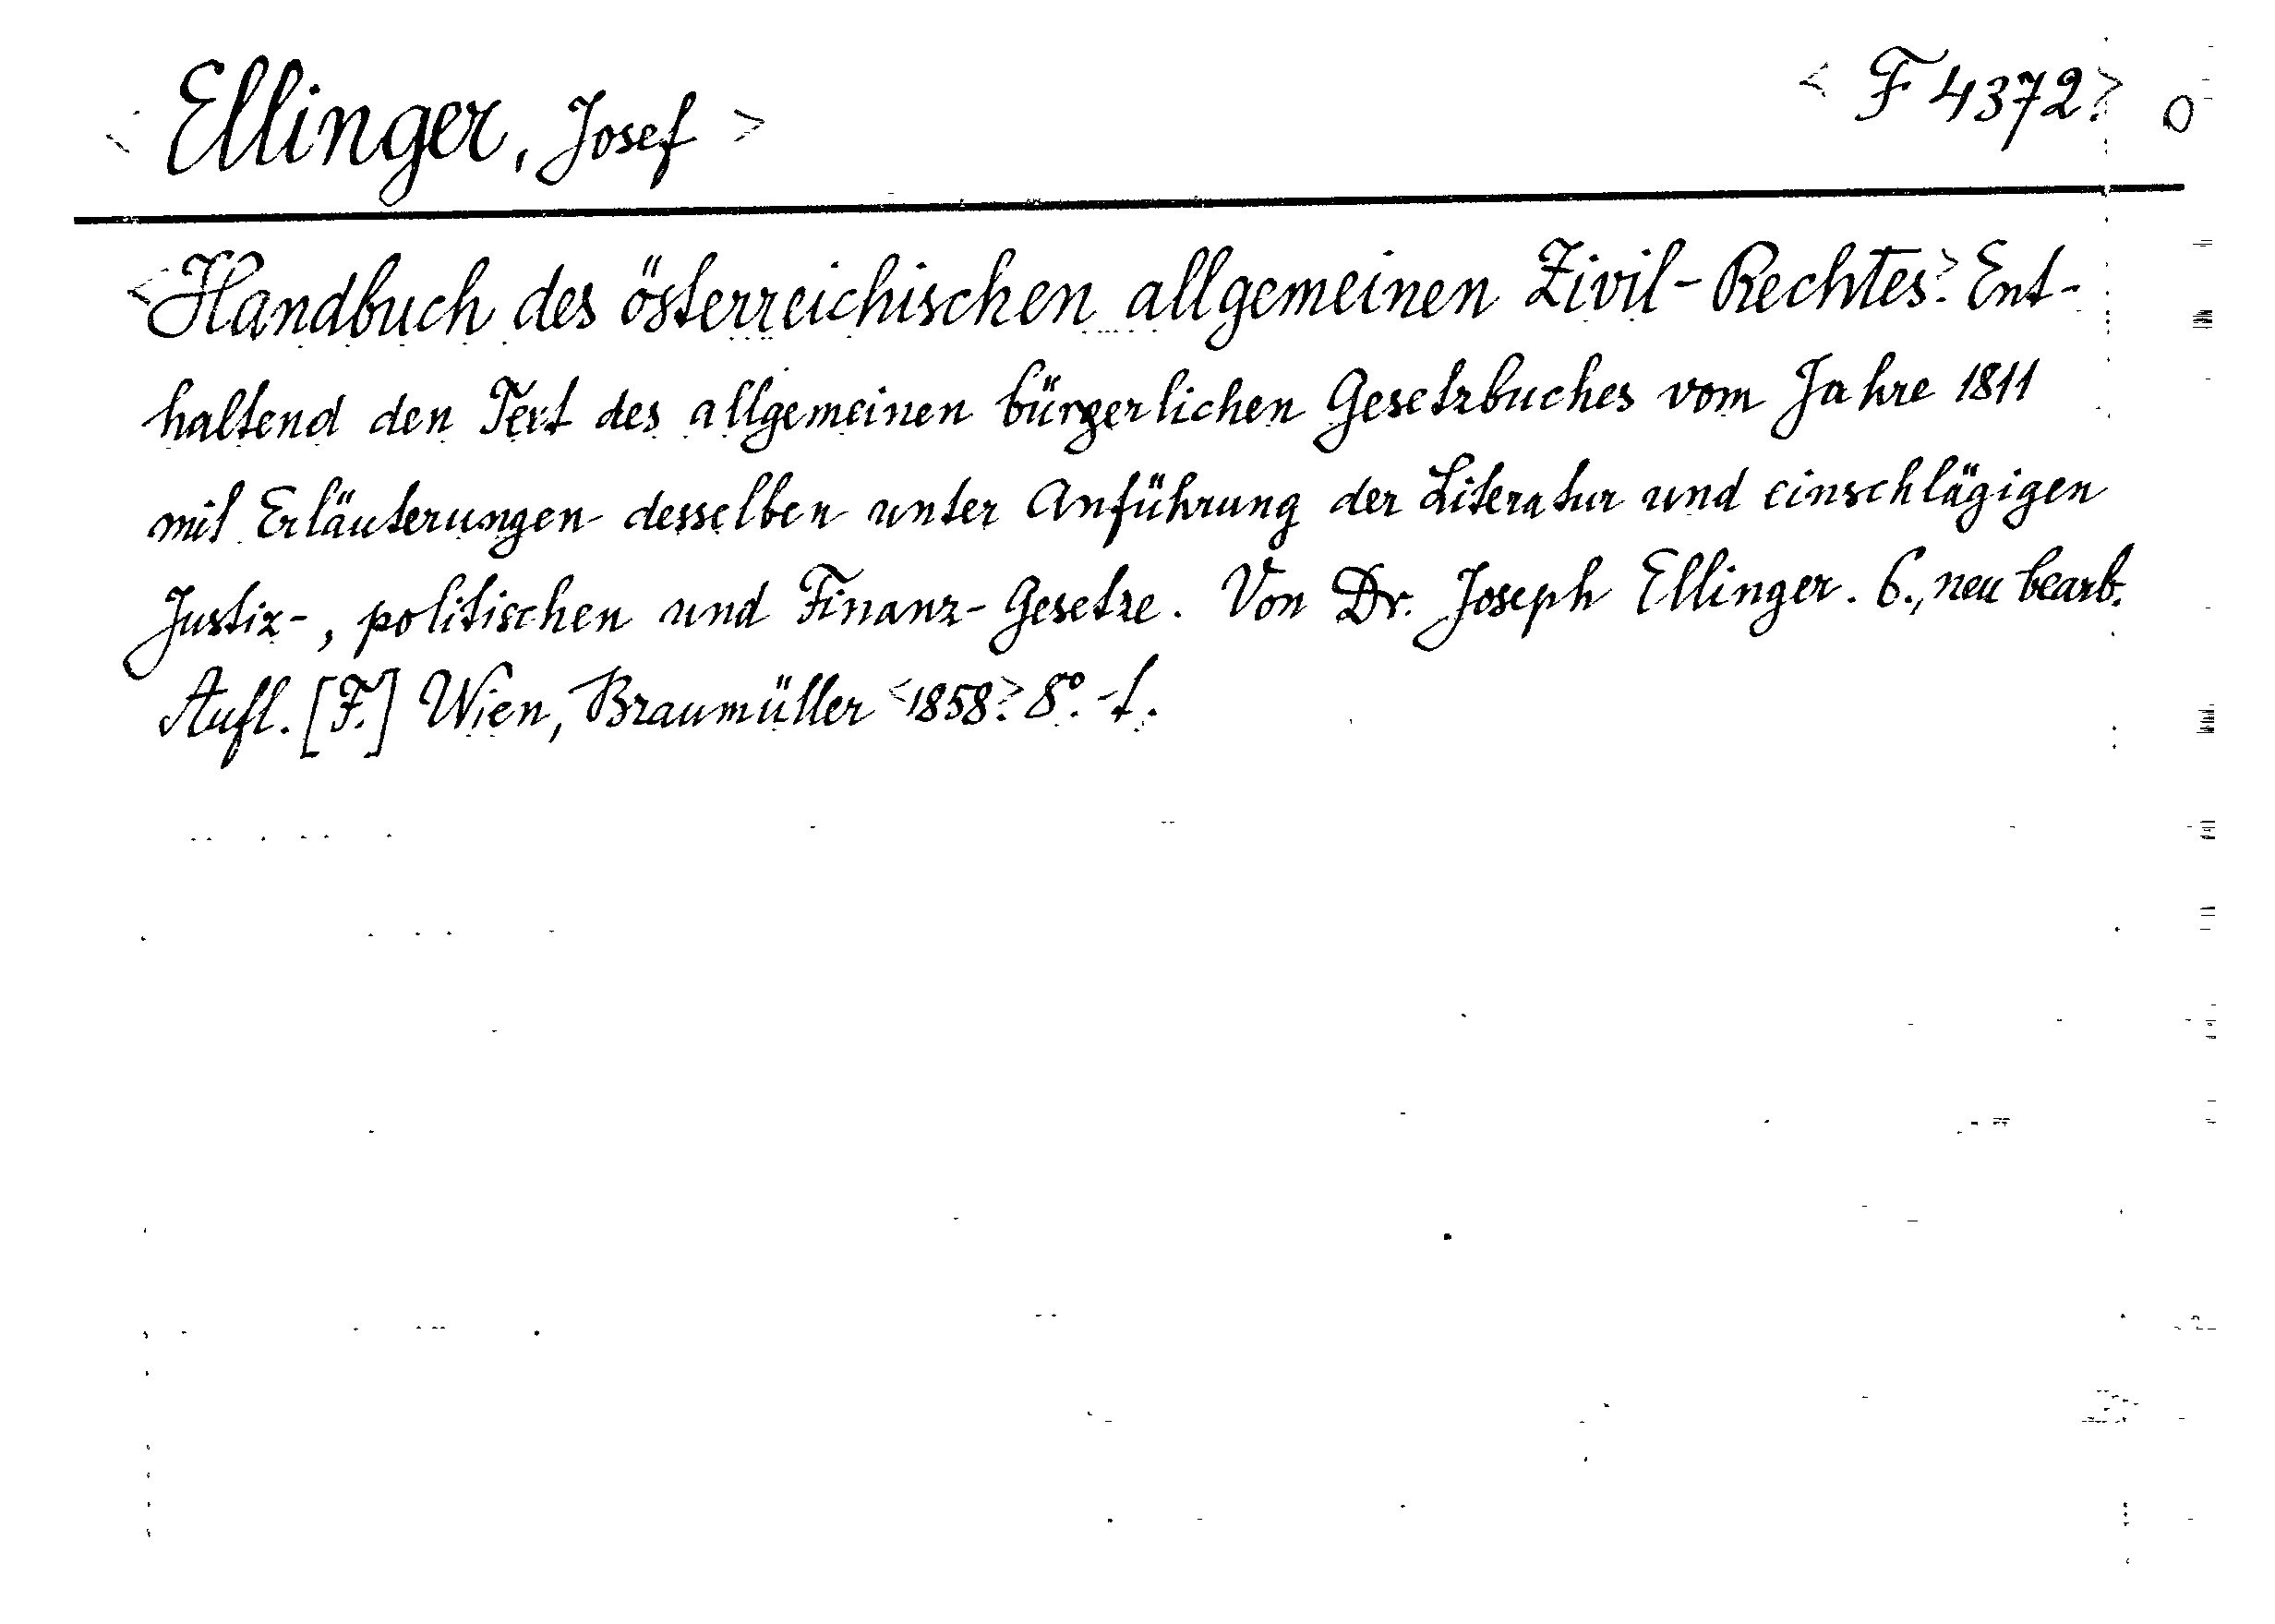 < Ellinger, Josef >
< F 4372> O
<Handbuch des österreichischen allgemeinen Zivil-Rechtes>. Ent-
haltend den Text des allgemeinen bürgerlichen Gesetzbuches vom Jahre 1811
mit Erläuterungen desselben unter Anführung der Literatur und einschlägigen
Justiz-, politischen und Finanz-Gesetze. Von Dr. Joseph Ellinger. 6., neu bearb.
Aufl. [F.] Wien, Braumüller <1858>. 8°. -f.